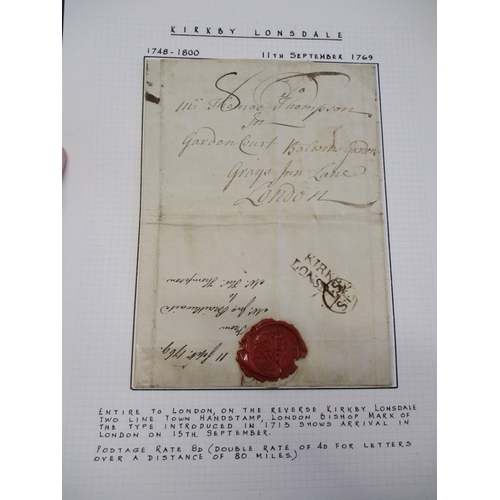 KIRKBY LONSDALE
1748-1800 11TH SEPTEMBER 1769
Mr Thompson
In
Garden Court Garden
Grays Inn Lane
London
KIRKBY
LONSD
11 Sept 1769
From
Mr Braithwaite
to
Mr Thos Thompson
ENTIRE TO LONDON, ON THE REVERSE KIRKBY LONSDALE
TWO LINE TOWN HANDSTAMP, LONDON BISHOP MARK OF
THE TYPE INTRODUCED IN 1713 SHOWS ARRIVAL IN
LONDON ON 15TH SEPTEMBER.
POSTAGE RATE 8D (DOUBLE RATE OF 4D FOR LETTERS
OVER A DISTANCE OF 80 MILES.)